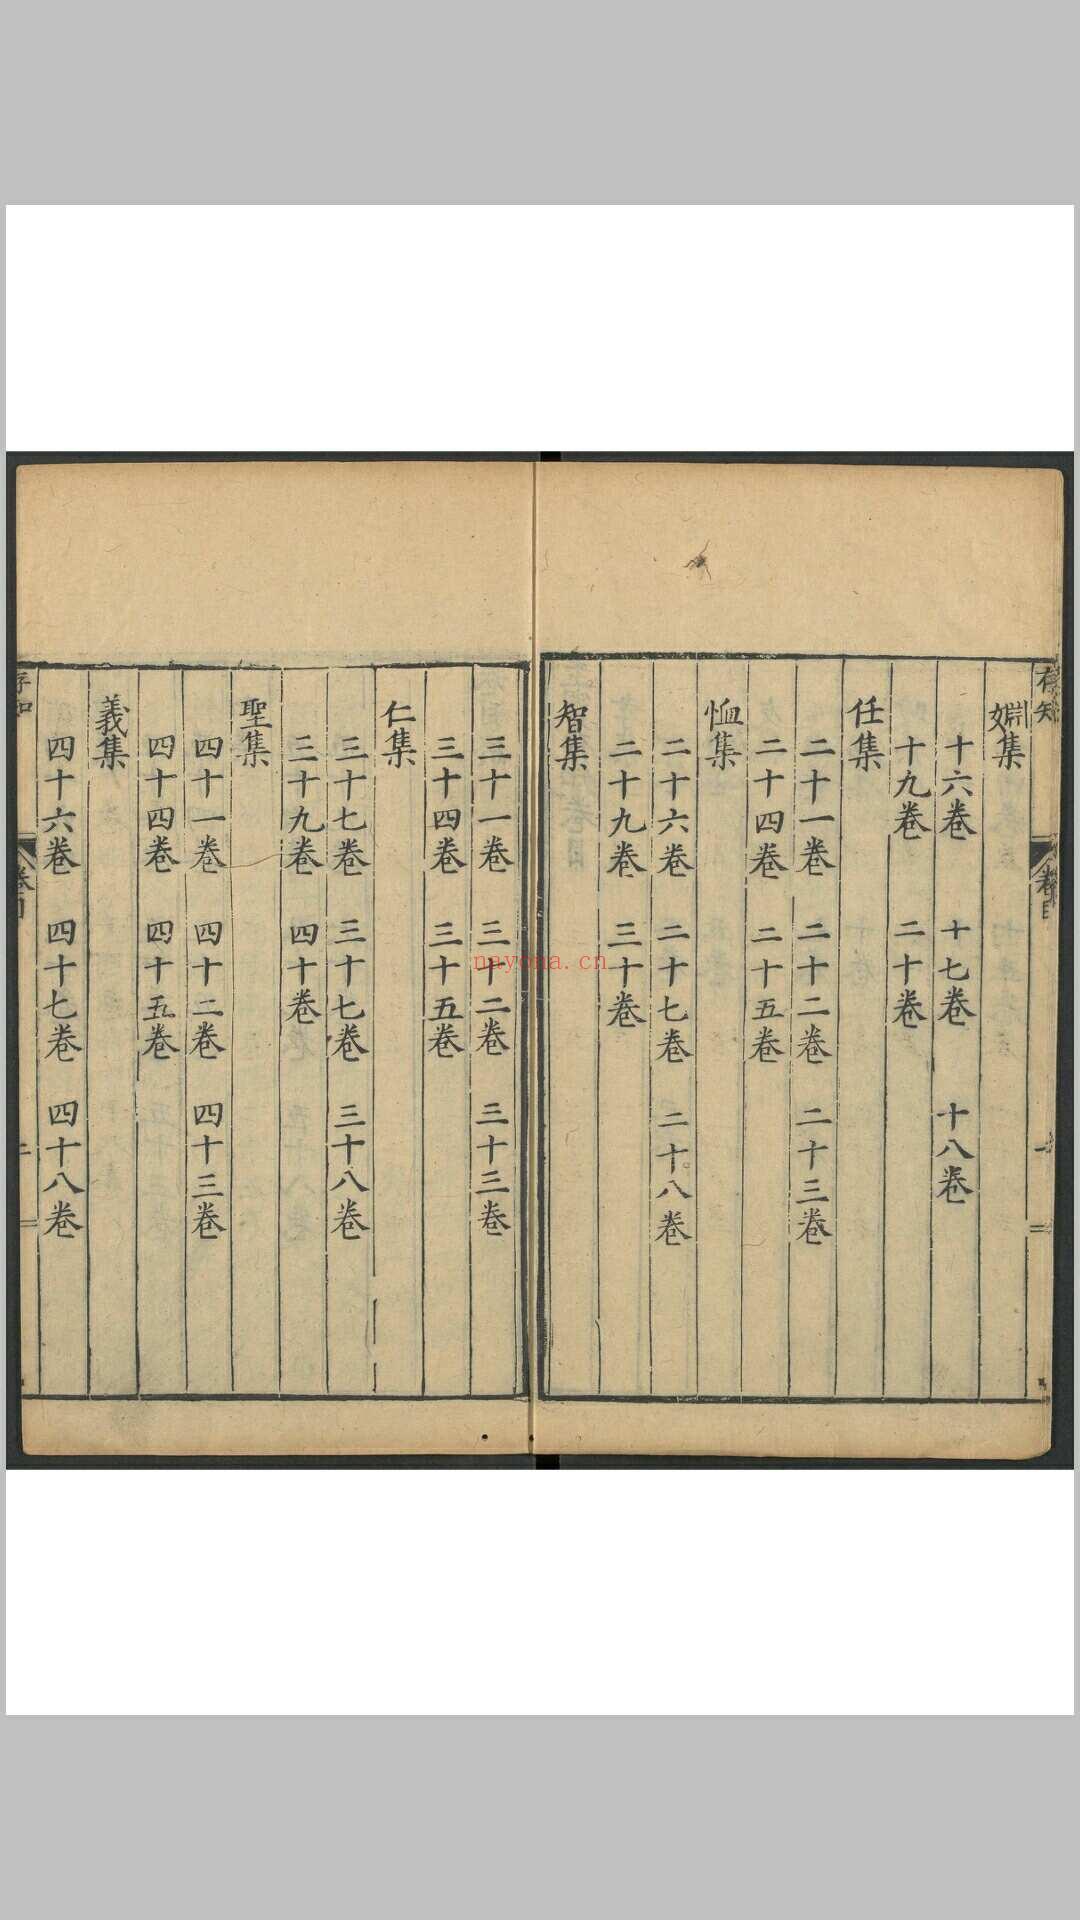 存知
卷目
婣集
十六卷 十七卷 十八卷
十九卷 二十卷
任集
二十一卷 二十二卷 二十三卷
二十四卷 二十五卷
恤集
二十六卷 二十七卷 二十八卷
二十九卷 三十卷
智集
三十一卷 三十二卷 三十三卷
三十四卷 三十五卷
仁集
三十七卷 三十七卷 三十八卷
三十九卷 四十卷
聖集
四十一卷 四十二卷 四十三卷
四十四卷 四十五卷
義集
四十六卷 四十七卷 四十八卷
nayona.cn